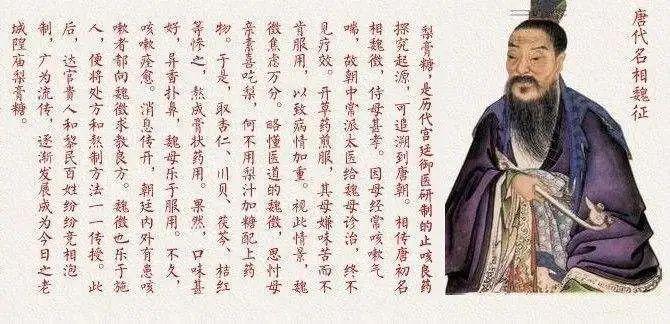 唐代名相魏征
梨膏糖，是历代宫廷御医研制的止咳良药
探究起源，可追溯到唐朝。相传唐初名
相魏徵，侍母甚孝。因母经常咳嗽气
喘，故朝中常派太医给魏母诊治，终不
见疗效。开草药煎服，其母嫌味苦而不
肯服用，以致病情加重。视此情景，魏
徵焦虑万分。略懂医道的魏徵，思忖母
亲素喜吃梨，何不用梨汁加糖配上药
物。于是，取杏仁、川贝、茯苓、桔红
等掺之，熬成膏状药用。果然，口味甚
好，异香扑鼻，魏母乐于服用。不久，
咳嗽痊愈。消息传开，朝廷内外有患咳
嗽者都向魏徵求教良方。魏徵也乐于施
人，便将处方和熬制方法一一传授。此
后，达官贵人和黎民百姓纷纷竞相泡
制，广为流传，逐渐发展成为今日之老
城隍庙梨膏糖。